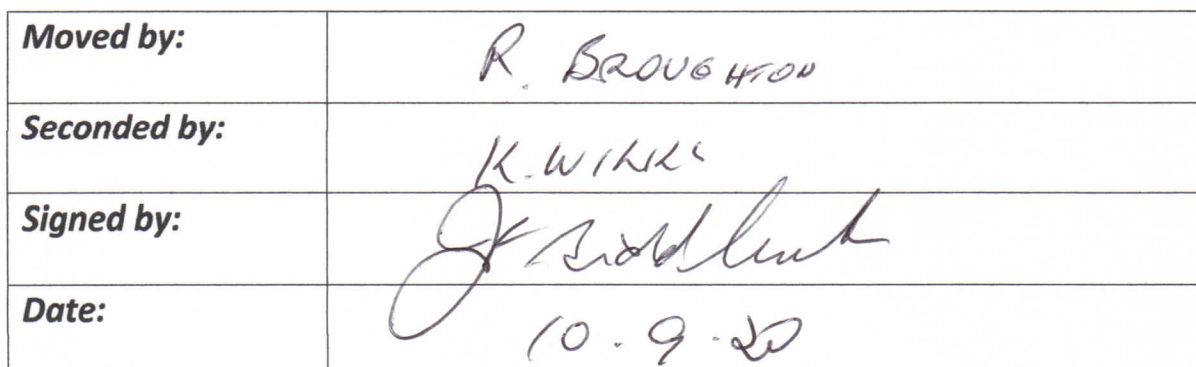 Moved by: R. BROUGHTON
Seconded by: K. WILKS
Signed by:
Date: 10.9.20